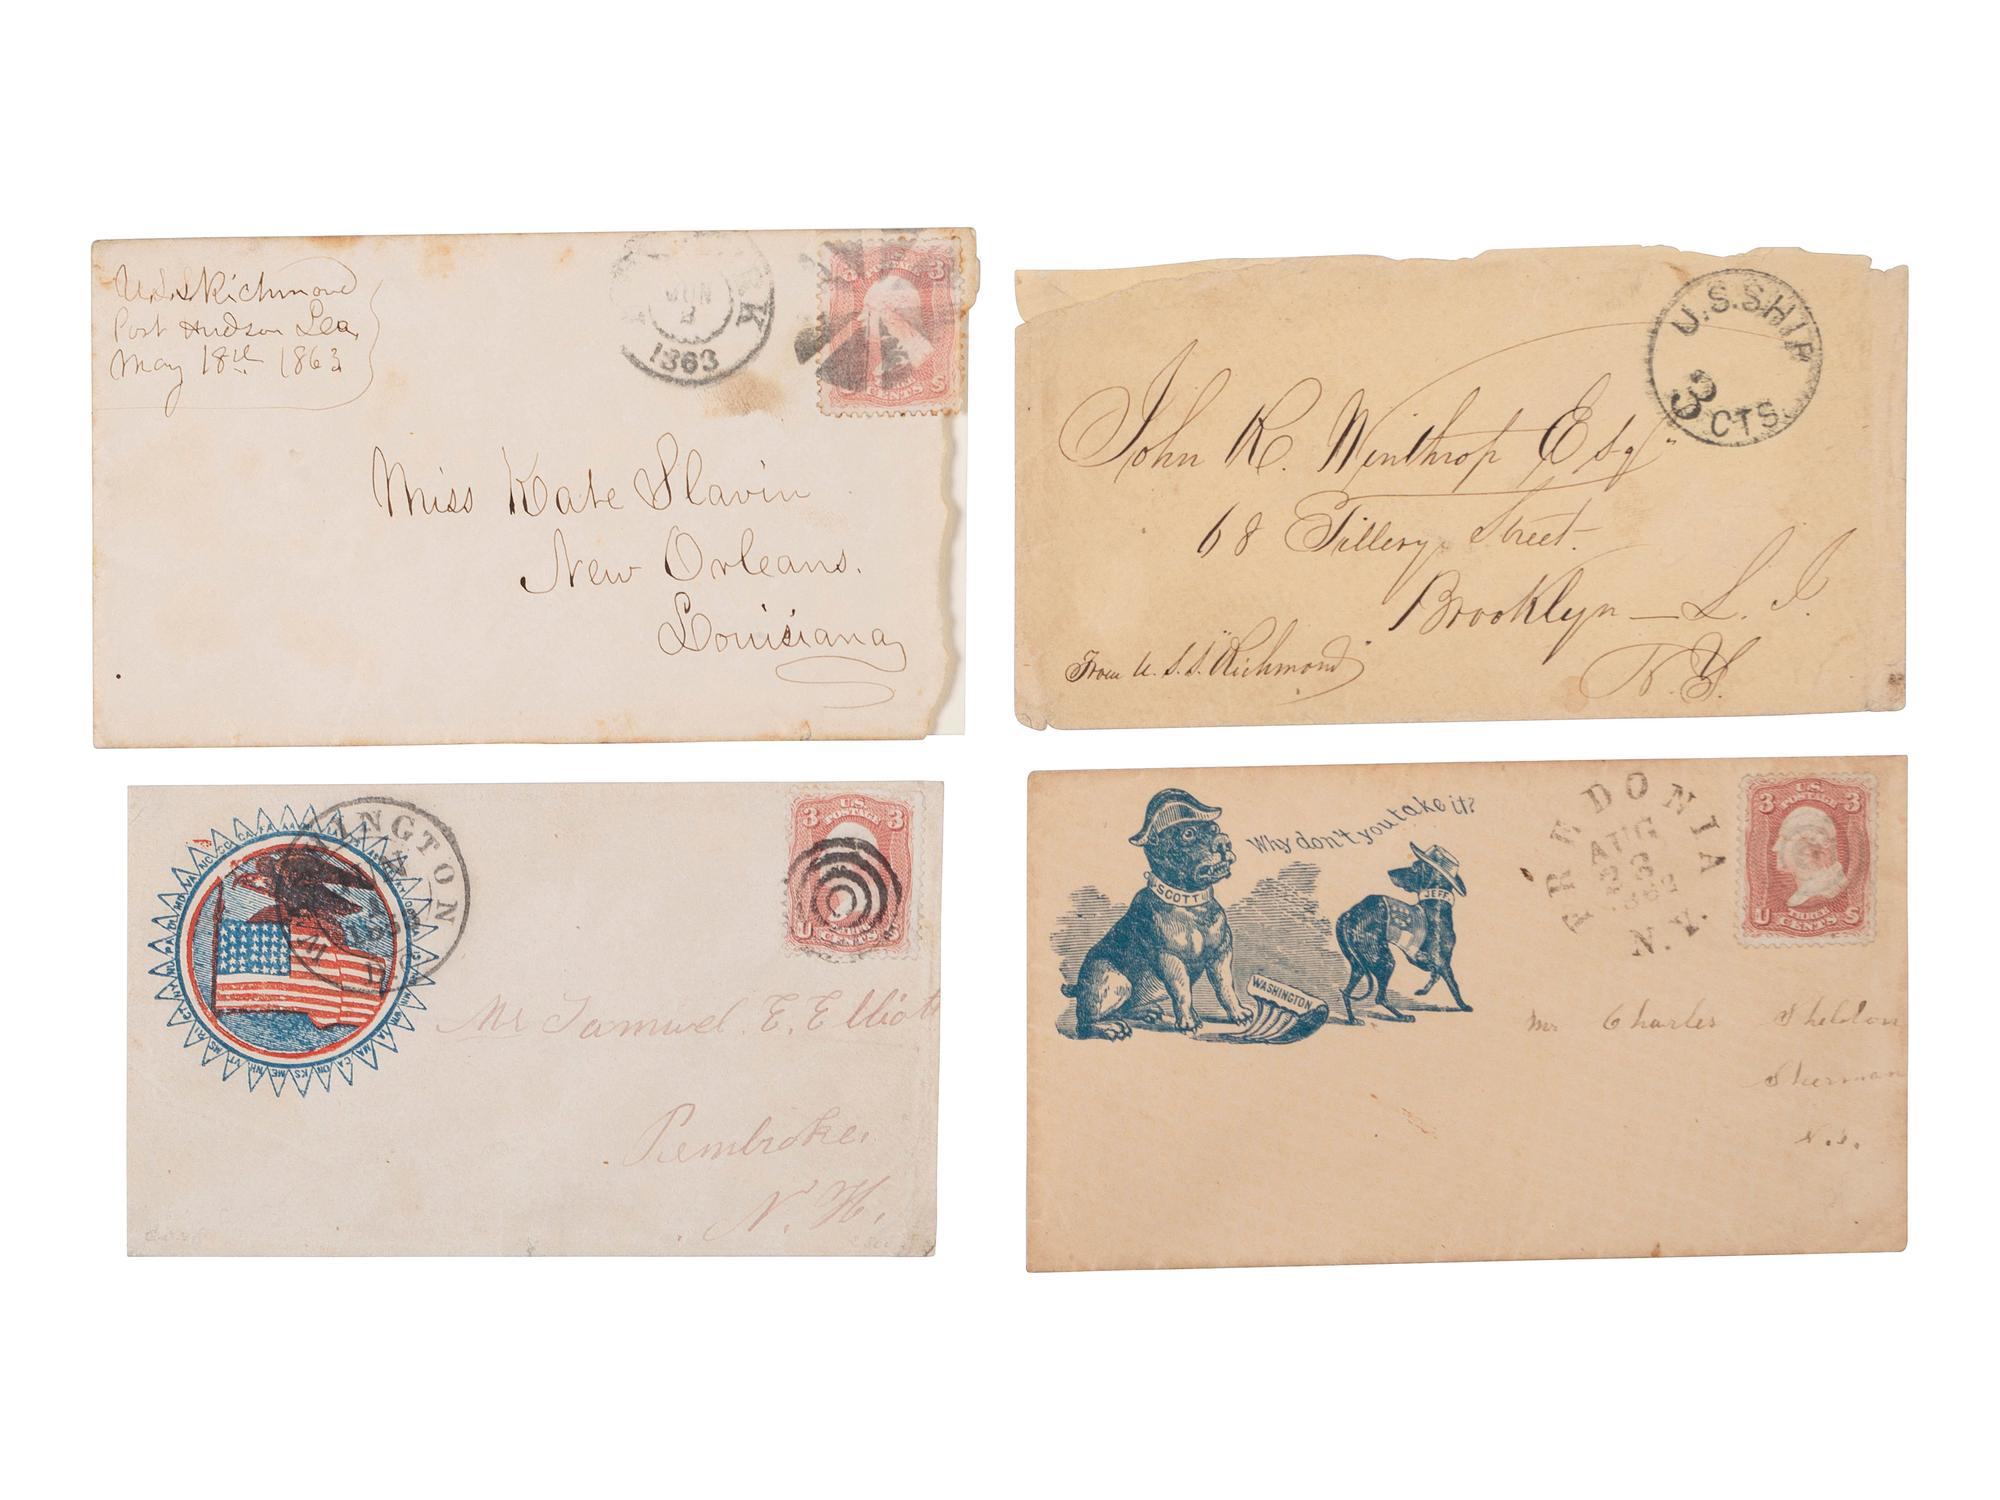 U.S.S Richmond
Port Hudson Lea
May 18th 1863
JUN
1863
3
CENTS
S
Miss Kate Slavin
New Orleans.
Louisiana
U.S.SHIP
3 CTS.
John R. Winthrop Esq.
68 Tillery Street.
Brooklyn — L. I.
N. Y.
From U.S.S. "Richmond"
INGTON
U.S.
POSTAGE
3 3
U CENTS S
Mr Samuel E. Elliott
Pembroke,
N. H.
Why don't you take it?
SCOTT
JEFF.
WASHINGTON
FREDONIA
AUG
N.Y.
U.S.
POSTAGE
3 3
U CENTS S
Mr Charles Sheldon
Sherman